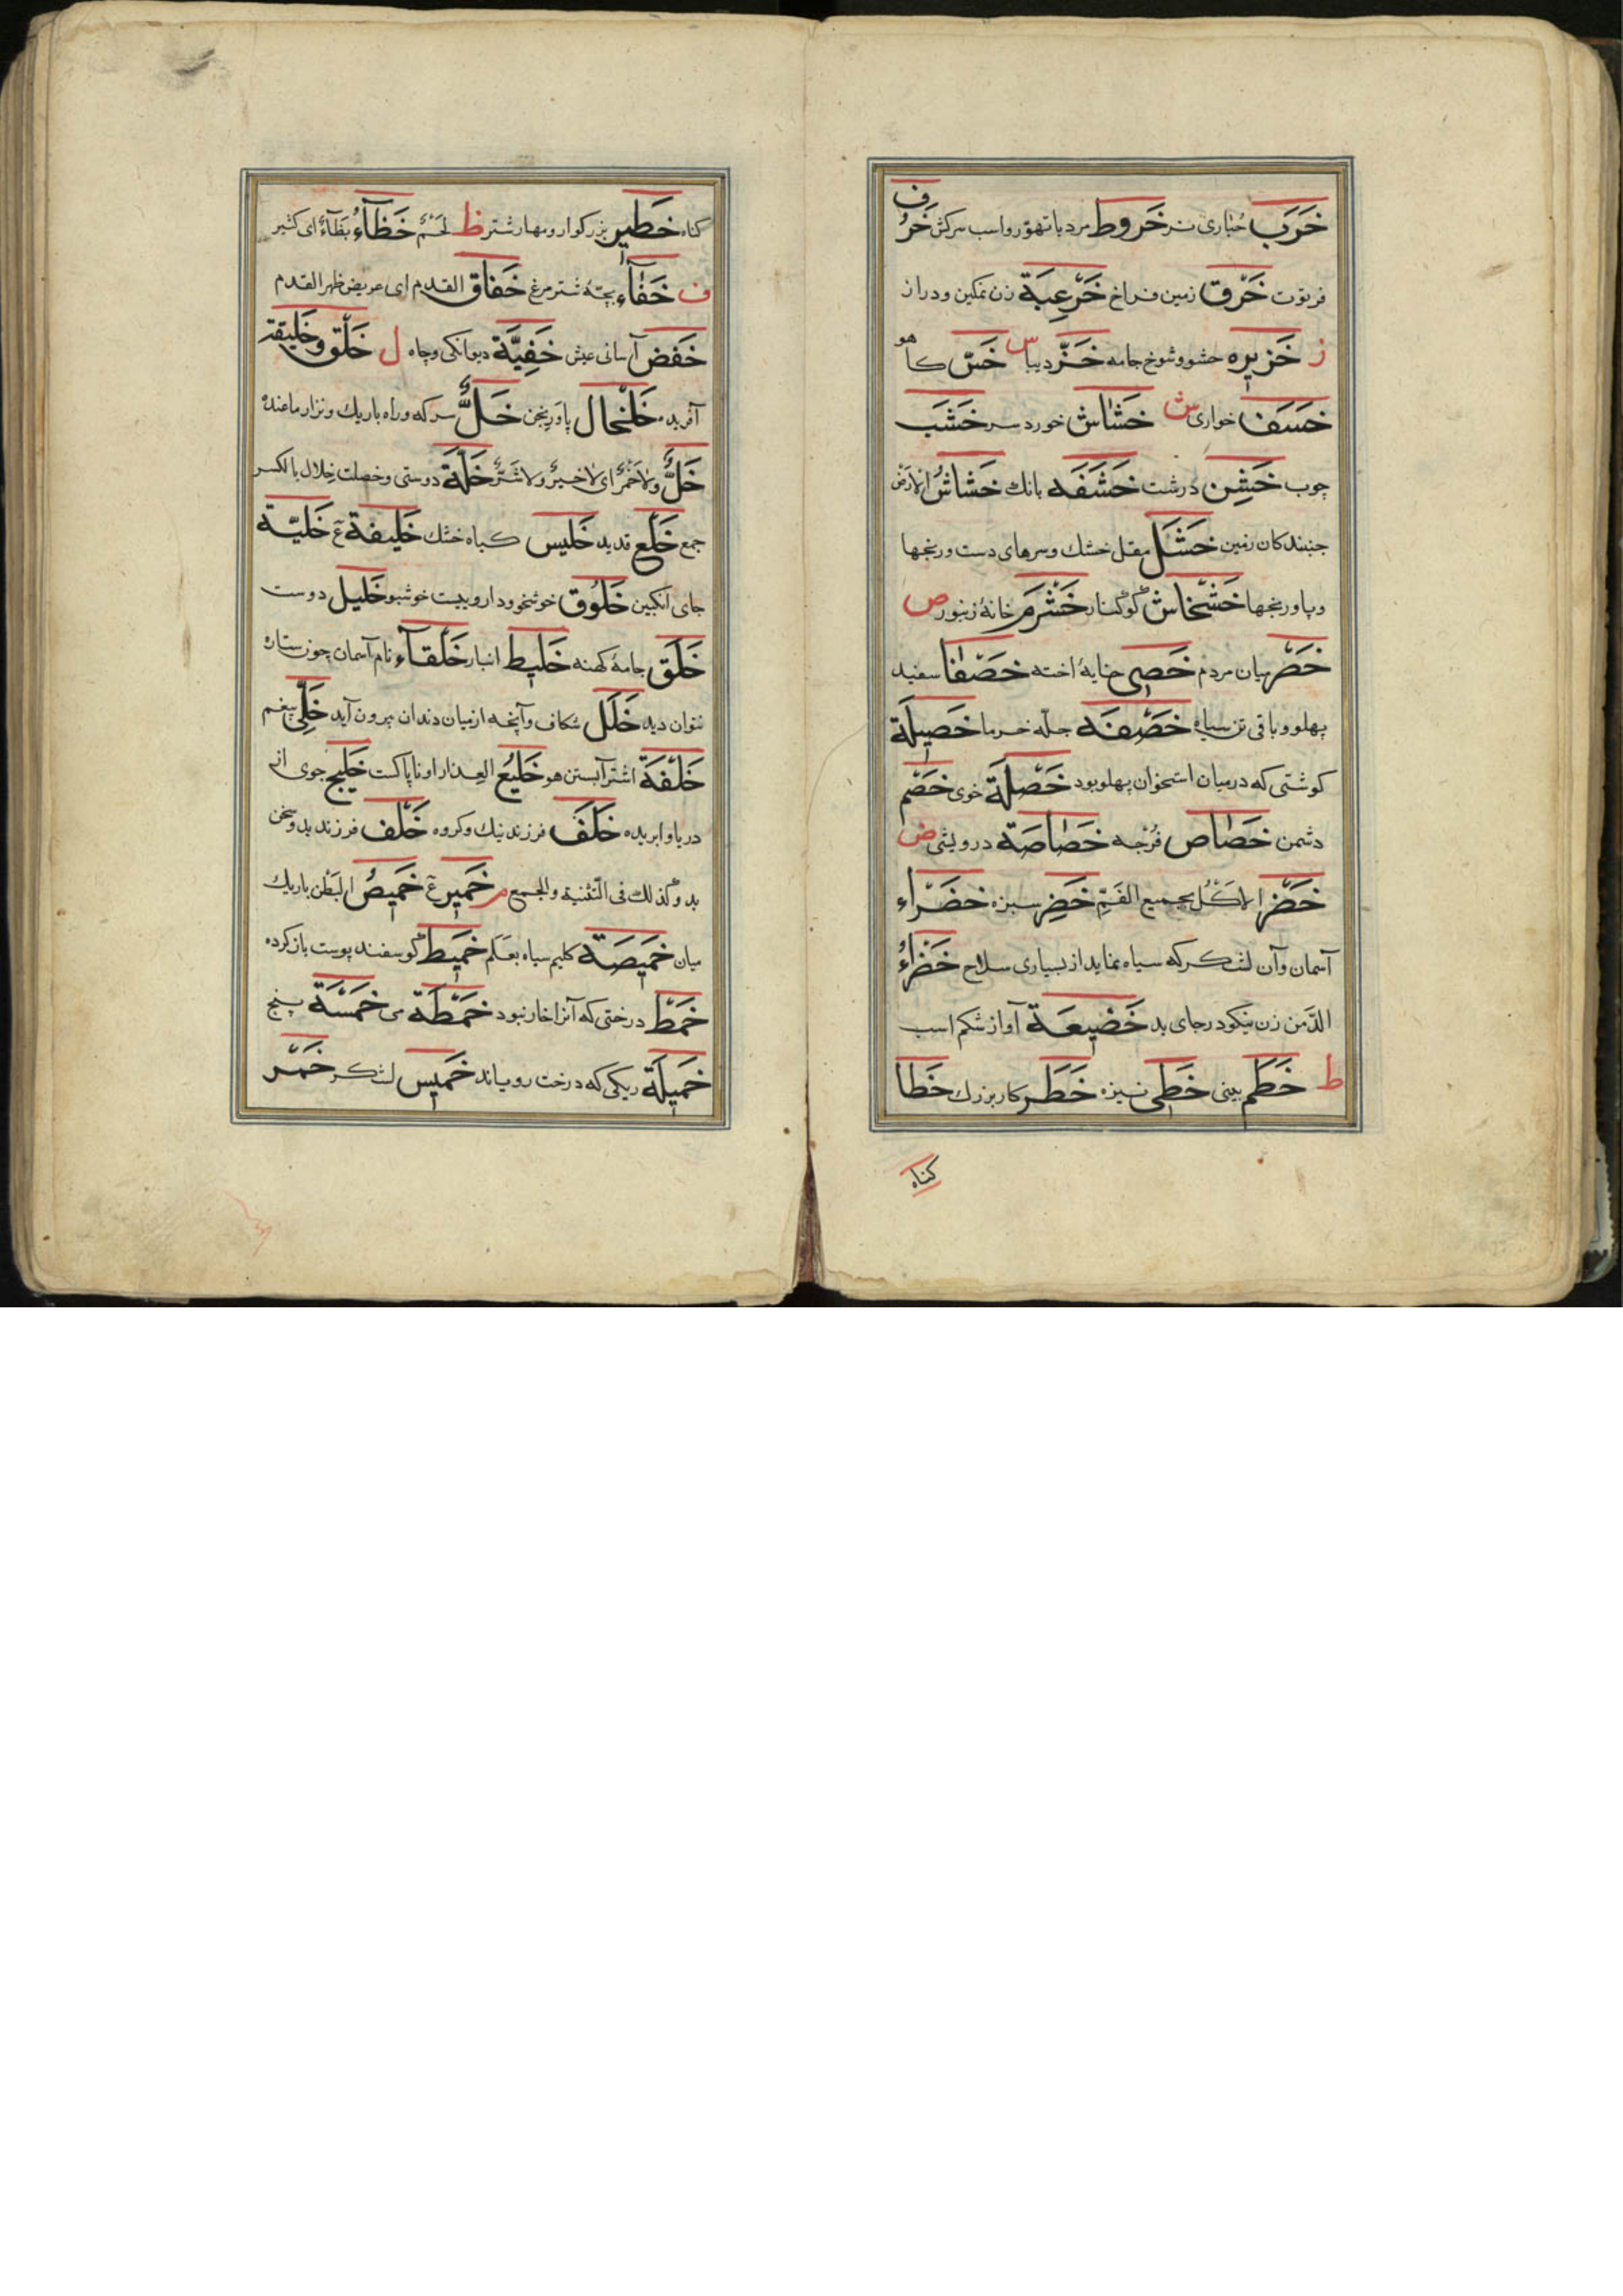 خَرَبَ حُبٰاری نر خَروط مرد باتهوّر واسب سرکش خَرُف
فرتوت خَرْق زمین فراخ خَرْعِبَة زن نمکین ودراز
ز خَزیره حشو وشوخ جامه خَزّ دیبا س خَسّ کاهو
خَسَف خواری ش خَشٰاش خورد سر خَشَب
چوب خَشِن درشت خَشَفَه بانك خَشاشُ الاَرض
جنبندکان زمین خَشَل مقل خشك وسرهای دست ورنجها
وپاورنجها خَشْخاش کوکنار خَشْرَم خانهٔ زنبور ص
خَصْر میان مردم خَصی خایهٔ اخته خَصْفا سفید
پهلو وباقی تن سیاه خَصْفَه جلّه خرما خَصیلَة
کوشتی که درمیان استخوان پهلو بود خَصْلَة خوی خَصْم
دشمن خَصٰاص فُرْجه خَصٰاصَة درویشی ض
خَضْر الاَکْل بجمیع الفَمِّ خَضِر سبزه خَضْراء
آسمان وآن لشکر که سیاه نماید از بسیاری سلاح خَضْراءُ
الدّمن زن نیکو درجای بد خَضیعَة آواز شکم اسب
ط خَطْم بینی خَطّی نیزه خَطَر کار بزرك خَطا
کناه
کناه خَطیر بزرکوار ومهار شتر ظ لَحْمٌ خَظآءُ بَظآءٌ ای کثیر
ف خَفّآء بچّهٔ شترمرغ خَفاق القدم ای عریض ظهر القدم
خَفض آسانی عیش خَفِیَّة دیوانکی وچاه ل خَلْق وخَلیقة
آفریده خَلْخال پاوَرنجن خَلٌّ سرکه وراه باریك ونزار ماعنده
خَلٌّ ولاخَمْرٌ ای لاخیرٌ ولاشَرٌّ خَلَّة دوستی وخصلت خِلال بالکسر
جمع خَلْع قدید خَلیس کیاه خشك خَلیفة ع خَلیّة
جای انکبین خَلوُق خوشخو وداروییست خوشبو خَلیل دوست
خَلَق جامهٔ کهنه خَلیط انبار خَلْقآء نام آسمان چون ستاره
نتوان دید خَلَل شکاف وآنچه ازمیان دندان بیرون آید خَلِّی بیغم
خَلْفَة اشتر آبستن هو خَلیعُ العِذار او ناپاکست خَلیج جوی از
دریا وابریده خَلَفَ فرزند نیك وکروه خَلْف فرزند بد وسخن
بد وکذلك فی التّثنیة والجمع م خَمیر ع خَمیصُ البَطْن باریك
میان خَمیصَة کلیم سیاه بعَلَم خَمیط کوسفند پوست بازکرده
خَمْط درختی که آنرا خار نبود خَمْطَة می خَمْسَة پنج
خَمیلَة ریکی که درخت رویاند خَمیس لشکر خَمْر